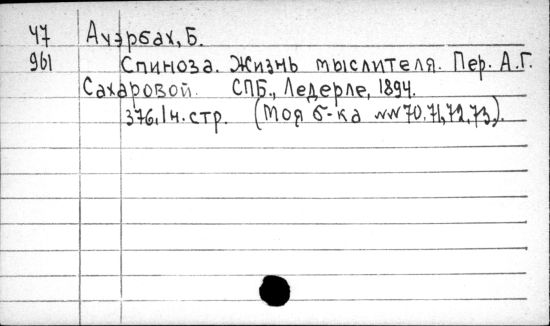 47 Ауэрбах, Б.
961 Спиноза. Жизнь мыслителя. Пер. А.Г.
Сахаровой. СПБ., Ледерле, 1894.
376, 1 н. стр. (Моя б-ка №№ 70, 71, 72, 73.).